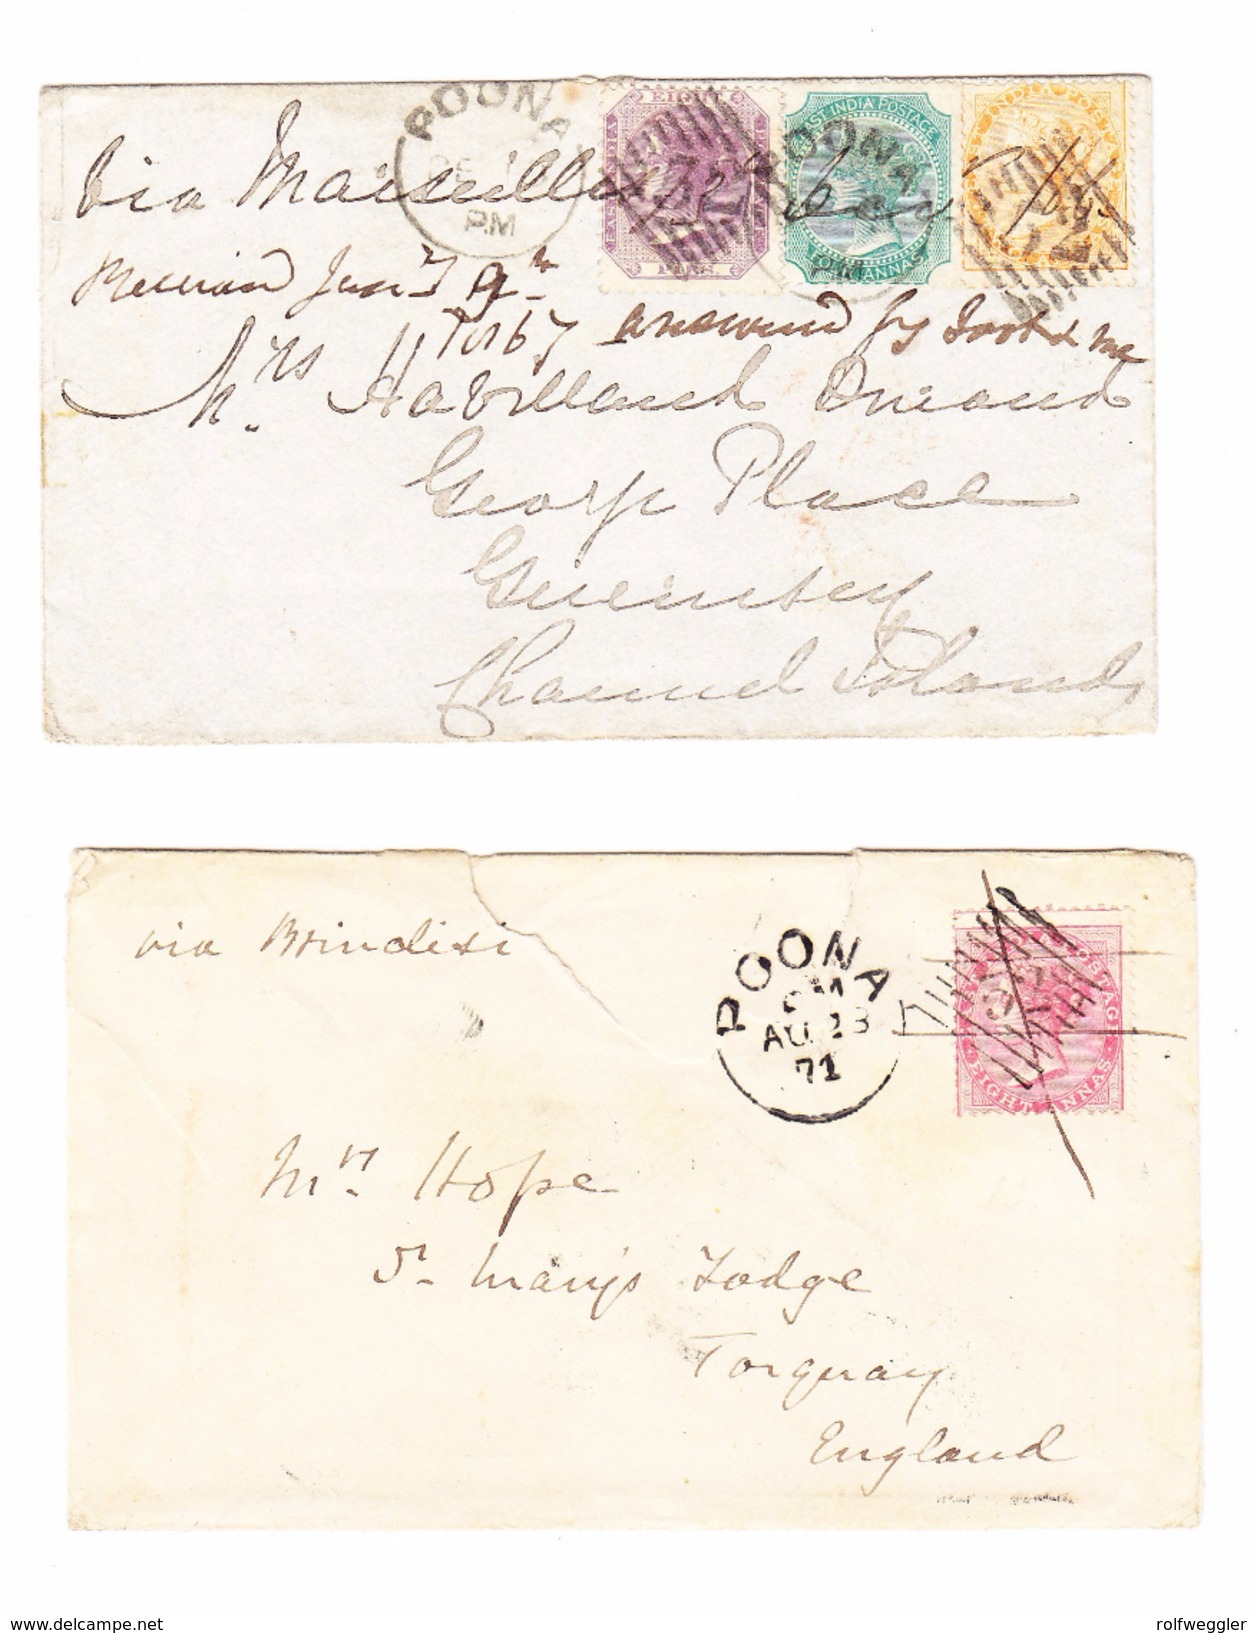 POONA
PM
EIGHT
PIES
EAST INDIA POSTAGE
FOUR ANNAS
INDIA POSTA
via Marseilles
Received Jany 9th
1867 answered by
Mrs Havilland Durand
George Place
Guernsey
Channel Islands
via Brindisi
POONA
AU 23
71
EIGHT ANNAS
Mrs. Hope
St Mary's Lodge
Torquay
England
www.delcampe.net
rolfweggler